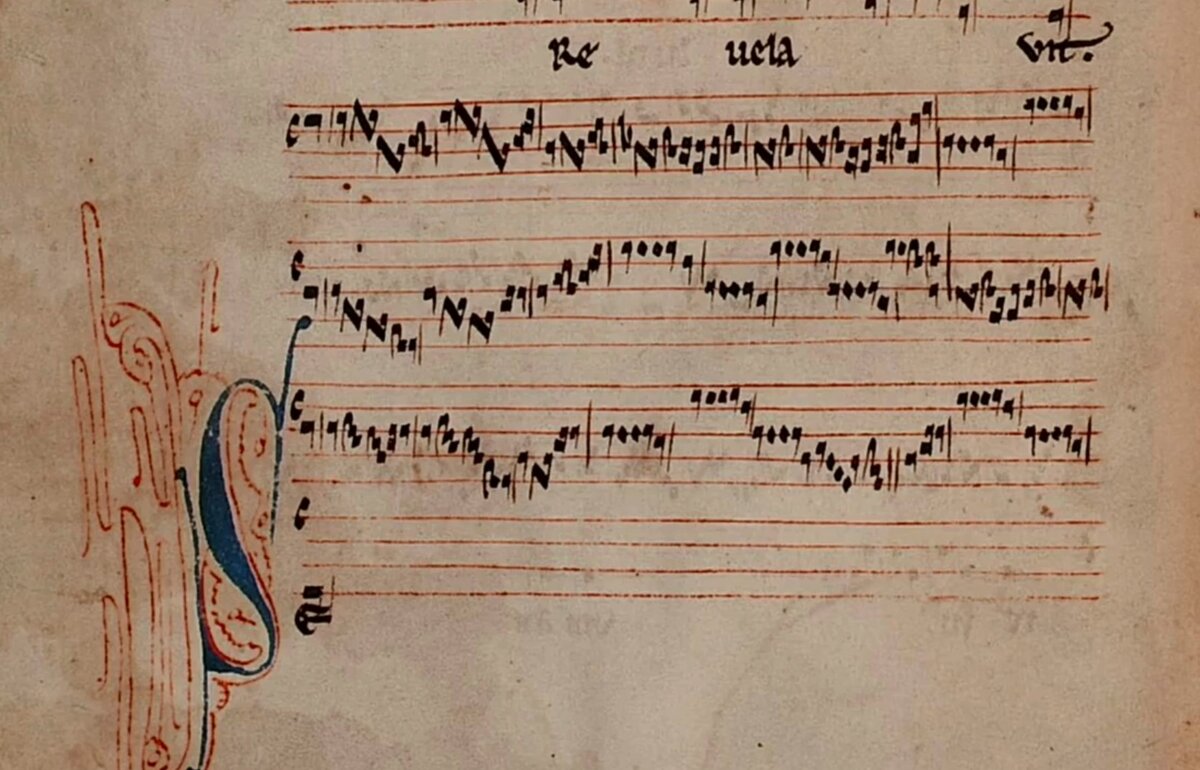 Re uela vit.